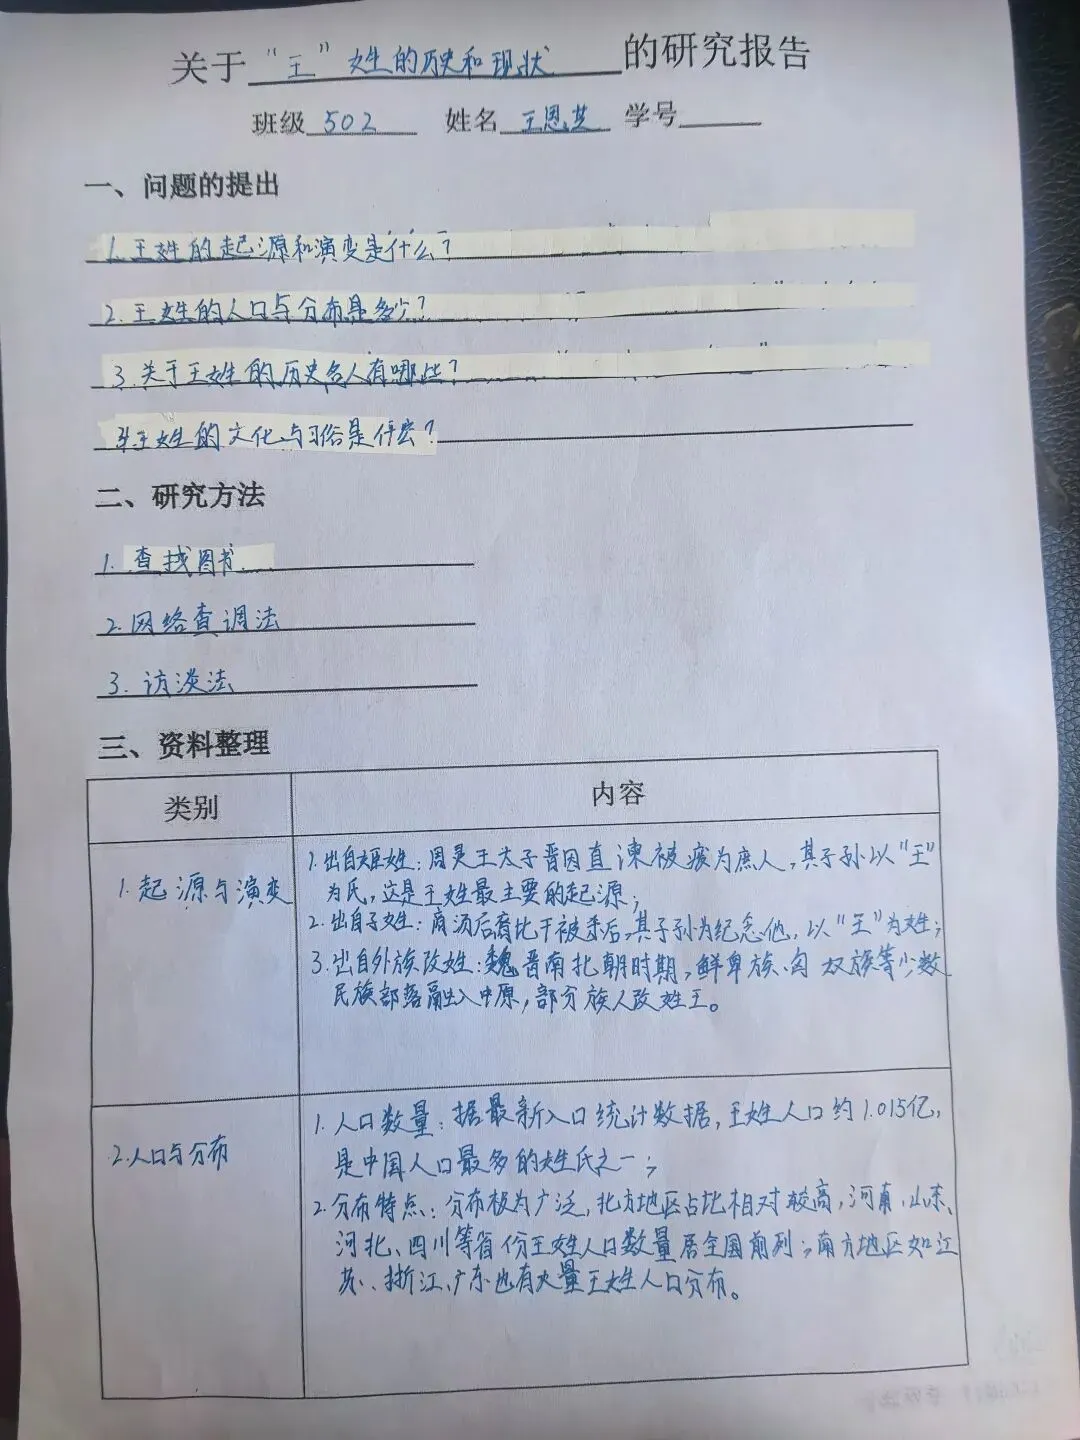 关于“王”姓的历史和现状的研究报告
班级 502 姓名 王恩芝 学号
一、问题的提出
1.王姓的起源和演变是什么?
2.王姓的人口与分布是多少?
3.关于王姓的历史名人有哪些?
4.王姓的文化与习俗是什么?
二、研究方法
1.查找图书
2.网络查调法
3.访谈法
三、资料整理
类别 内容
1.起源与演变
1.出自姬姓:周灵王太子晋因直谏被废为庶人,其子孙以“王”
为氏,这是王姓最主要的起源;
2.出自子姓:商汤后裔比干被杀后,其子孙为纪念他,以“王”为姓;
3.出自外族改姓:魏晋南北朝时期,鲜卑族、匈奴族等少数
民族部落融入中原,部分族人改姓王。
2.人口与分布
1.人口数量:据最新人口统计数据,王姓人口约1.015亿,
是中国人口最多的姓氏之一;
2.分布特点:分布极为广泛,北方地区占比相对较高,河南、山东、
河北、四川等省份王姓人口数量居全国前列;南方地区如江
苏、浙江、广东也有大量王姓人口分布。